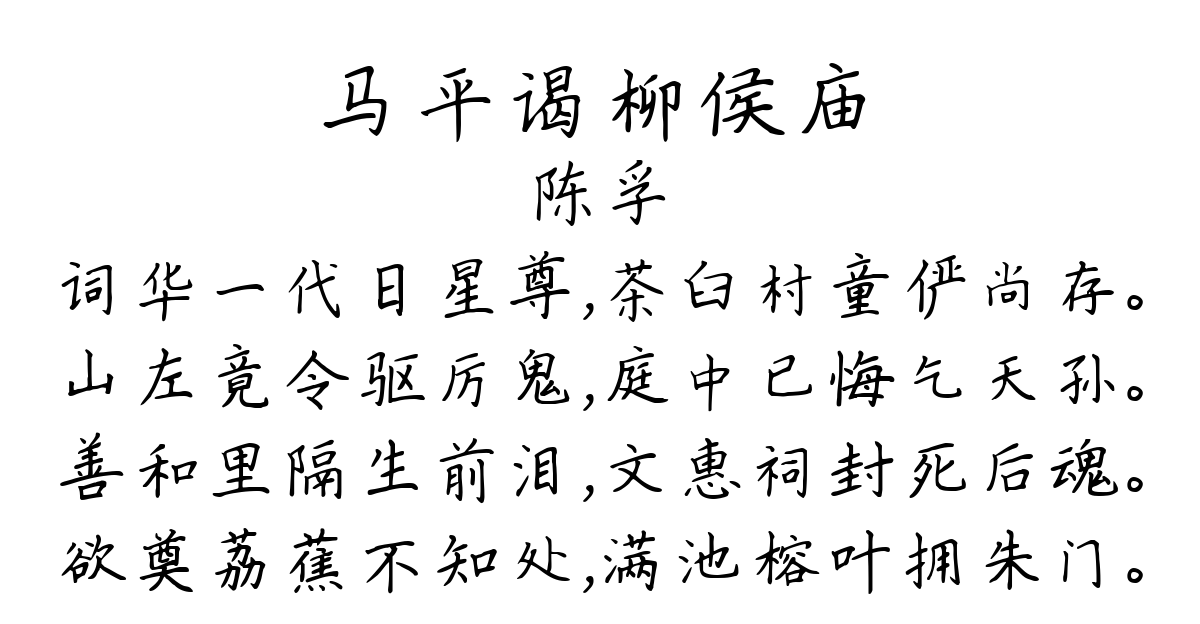 马平谒柳侯庙
陈孚
词华一代日星尊,茶臼村童俨尚存。
山左竟令驱厉鬼,庭中已悔乞天孙。
善和里隔生前泪,文惠祠封死后魂。
欲奠荔蕉不知处,满池榕叶拥朱门。